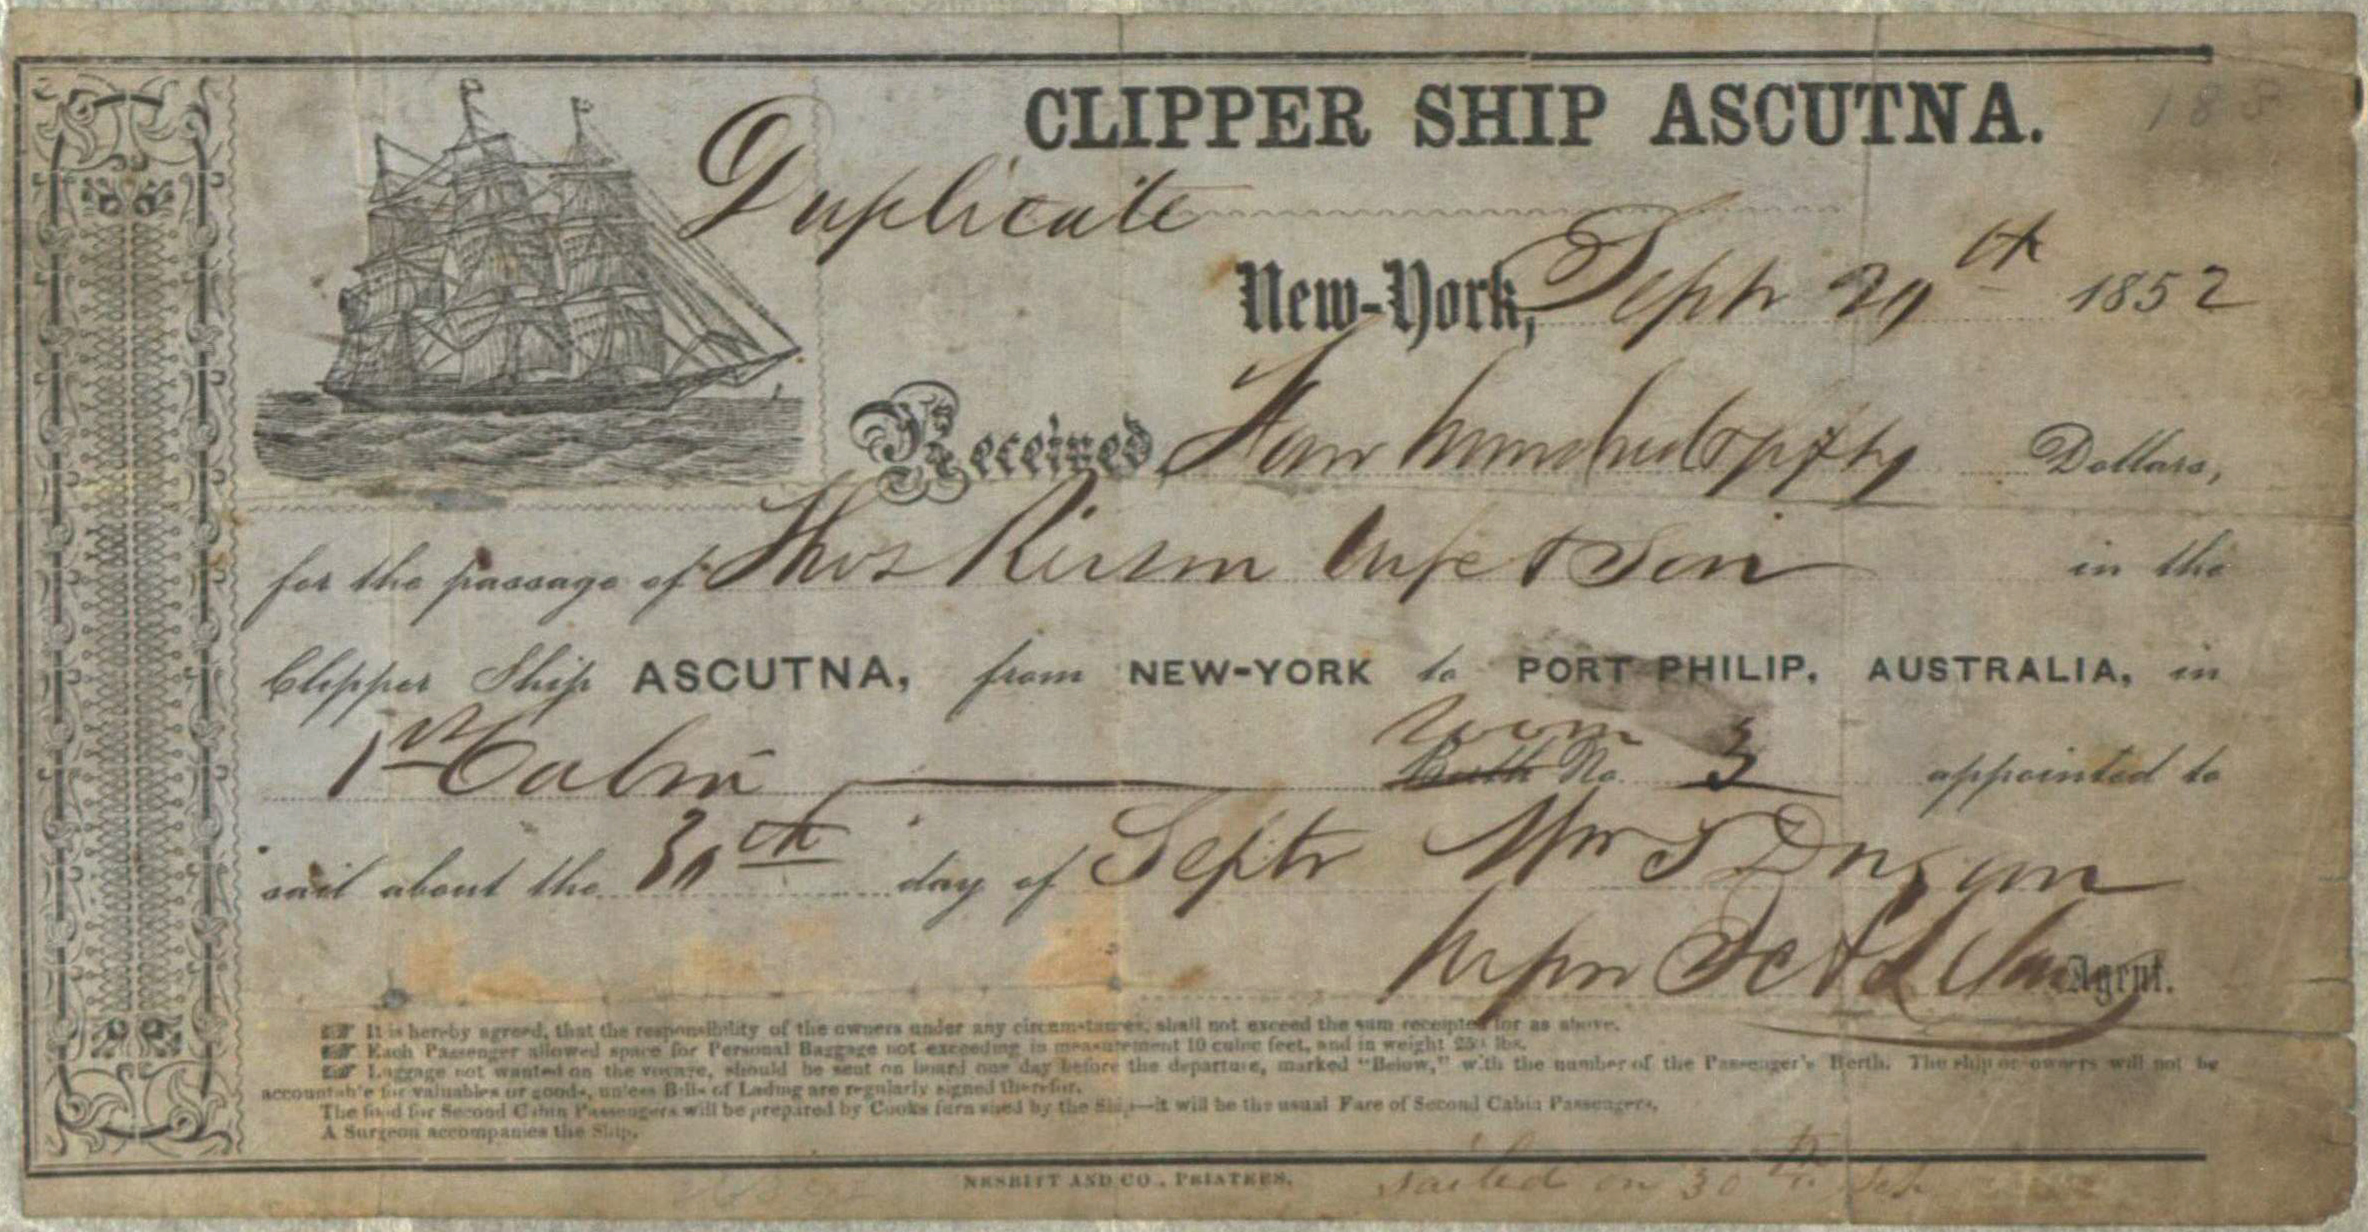 CLIPPER SHIP ASCUTNA.
185
Duplicate
New-York, Septr 29th 1852
Received Four hundred & fifty Dollars,
for the passage of Thos Wife & Son in the
Clipper Ship ASCUTNA, from NEW-YORK to PORT PHILIP, AUSTRALIA, in
room
1st Cabin Berth No. 3 appointed to
sail about the 30th day of Septr Wm
Agent.
☞ It is hereby agreed, that the responsibility of the owners under any circumstances, shall not exceed the sum receipted for as above.
☞ Each Passenger allowed space for Personal Baggage not exceeding in measurement 10 cubic feet, and in weight 250 lbs.
☞ Luggage not wanted on the voyage, should be sent on board one day before the departure, marked "Below," with the number of the Passenger's Berth. The ship or owners will not be
accountable for valuables or goods, unless Bills of Lading are regularly signed therefor.
The food for Second Cabin Passengers will be prepared by Cooks furnished by the Ship—it will be the usual Fare of Second Cabin Passengers.
A Surgeon accompanies the Ship.
NESBITT AND CO., PRINTERS.
sailed on 30th Sep